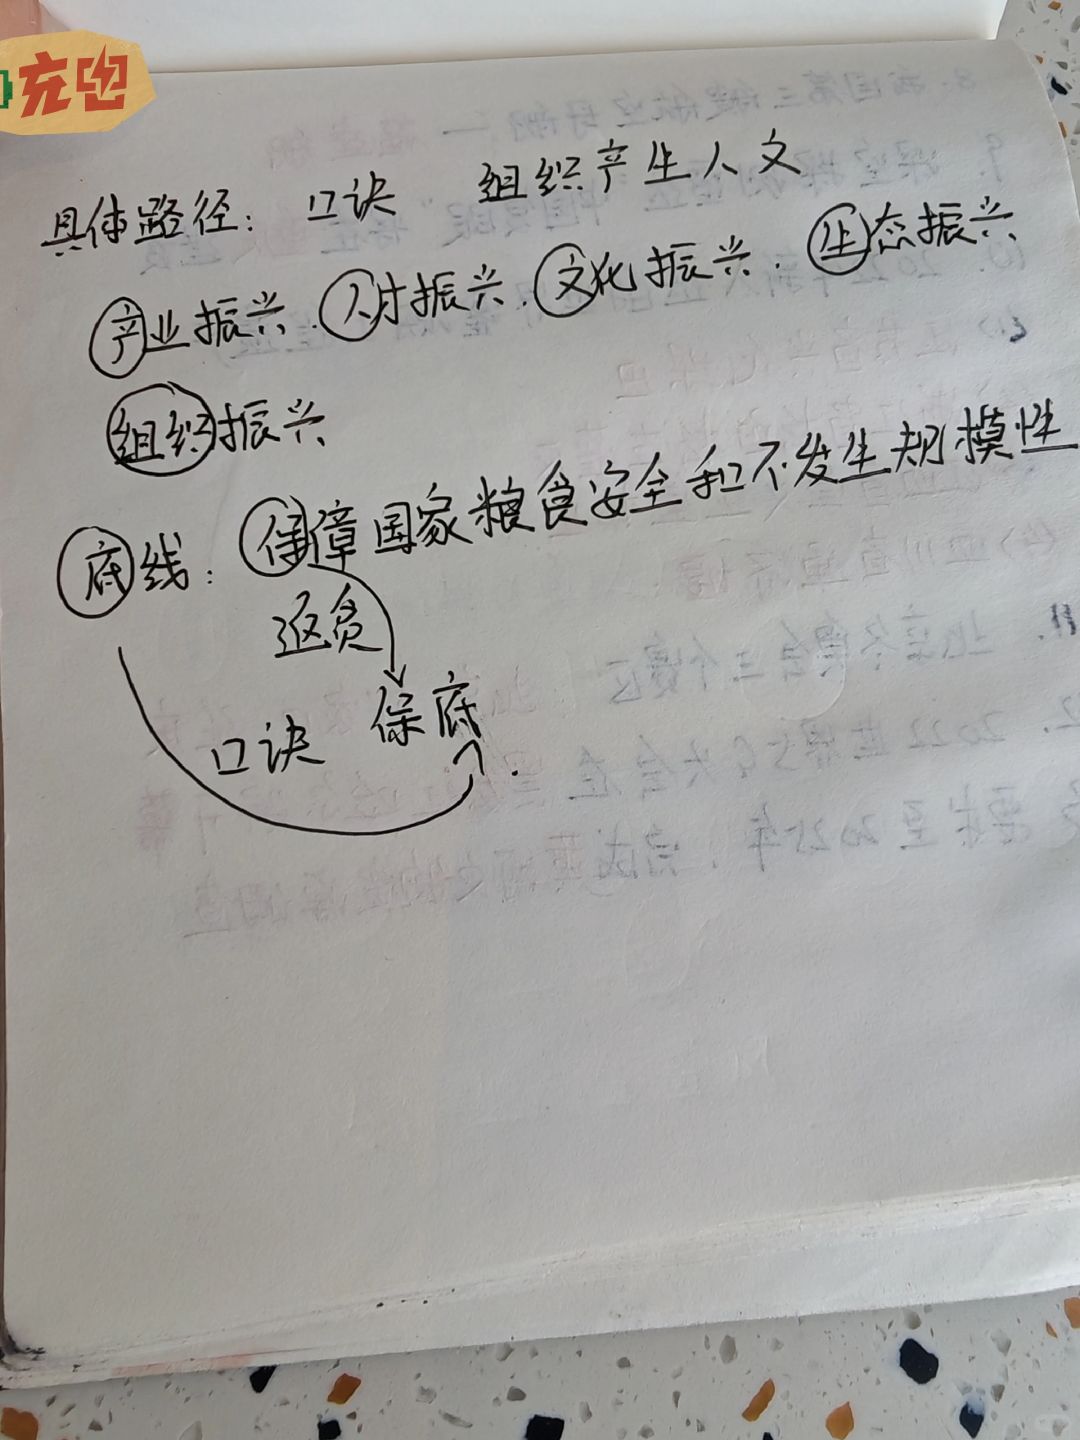 充电
具体路径：口诀 组织产生人文
产业振兴、人才振兴、文化振兴、生态振兴
组织振兴
底线：保障国家粮食安全和不发生规模性
返贫
口诀 保底